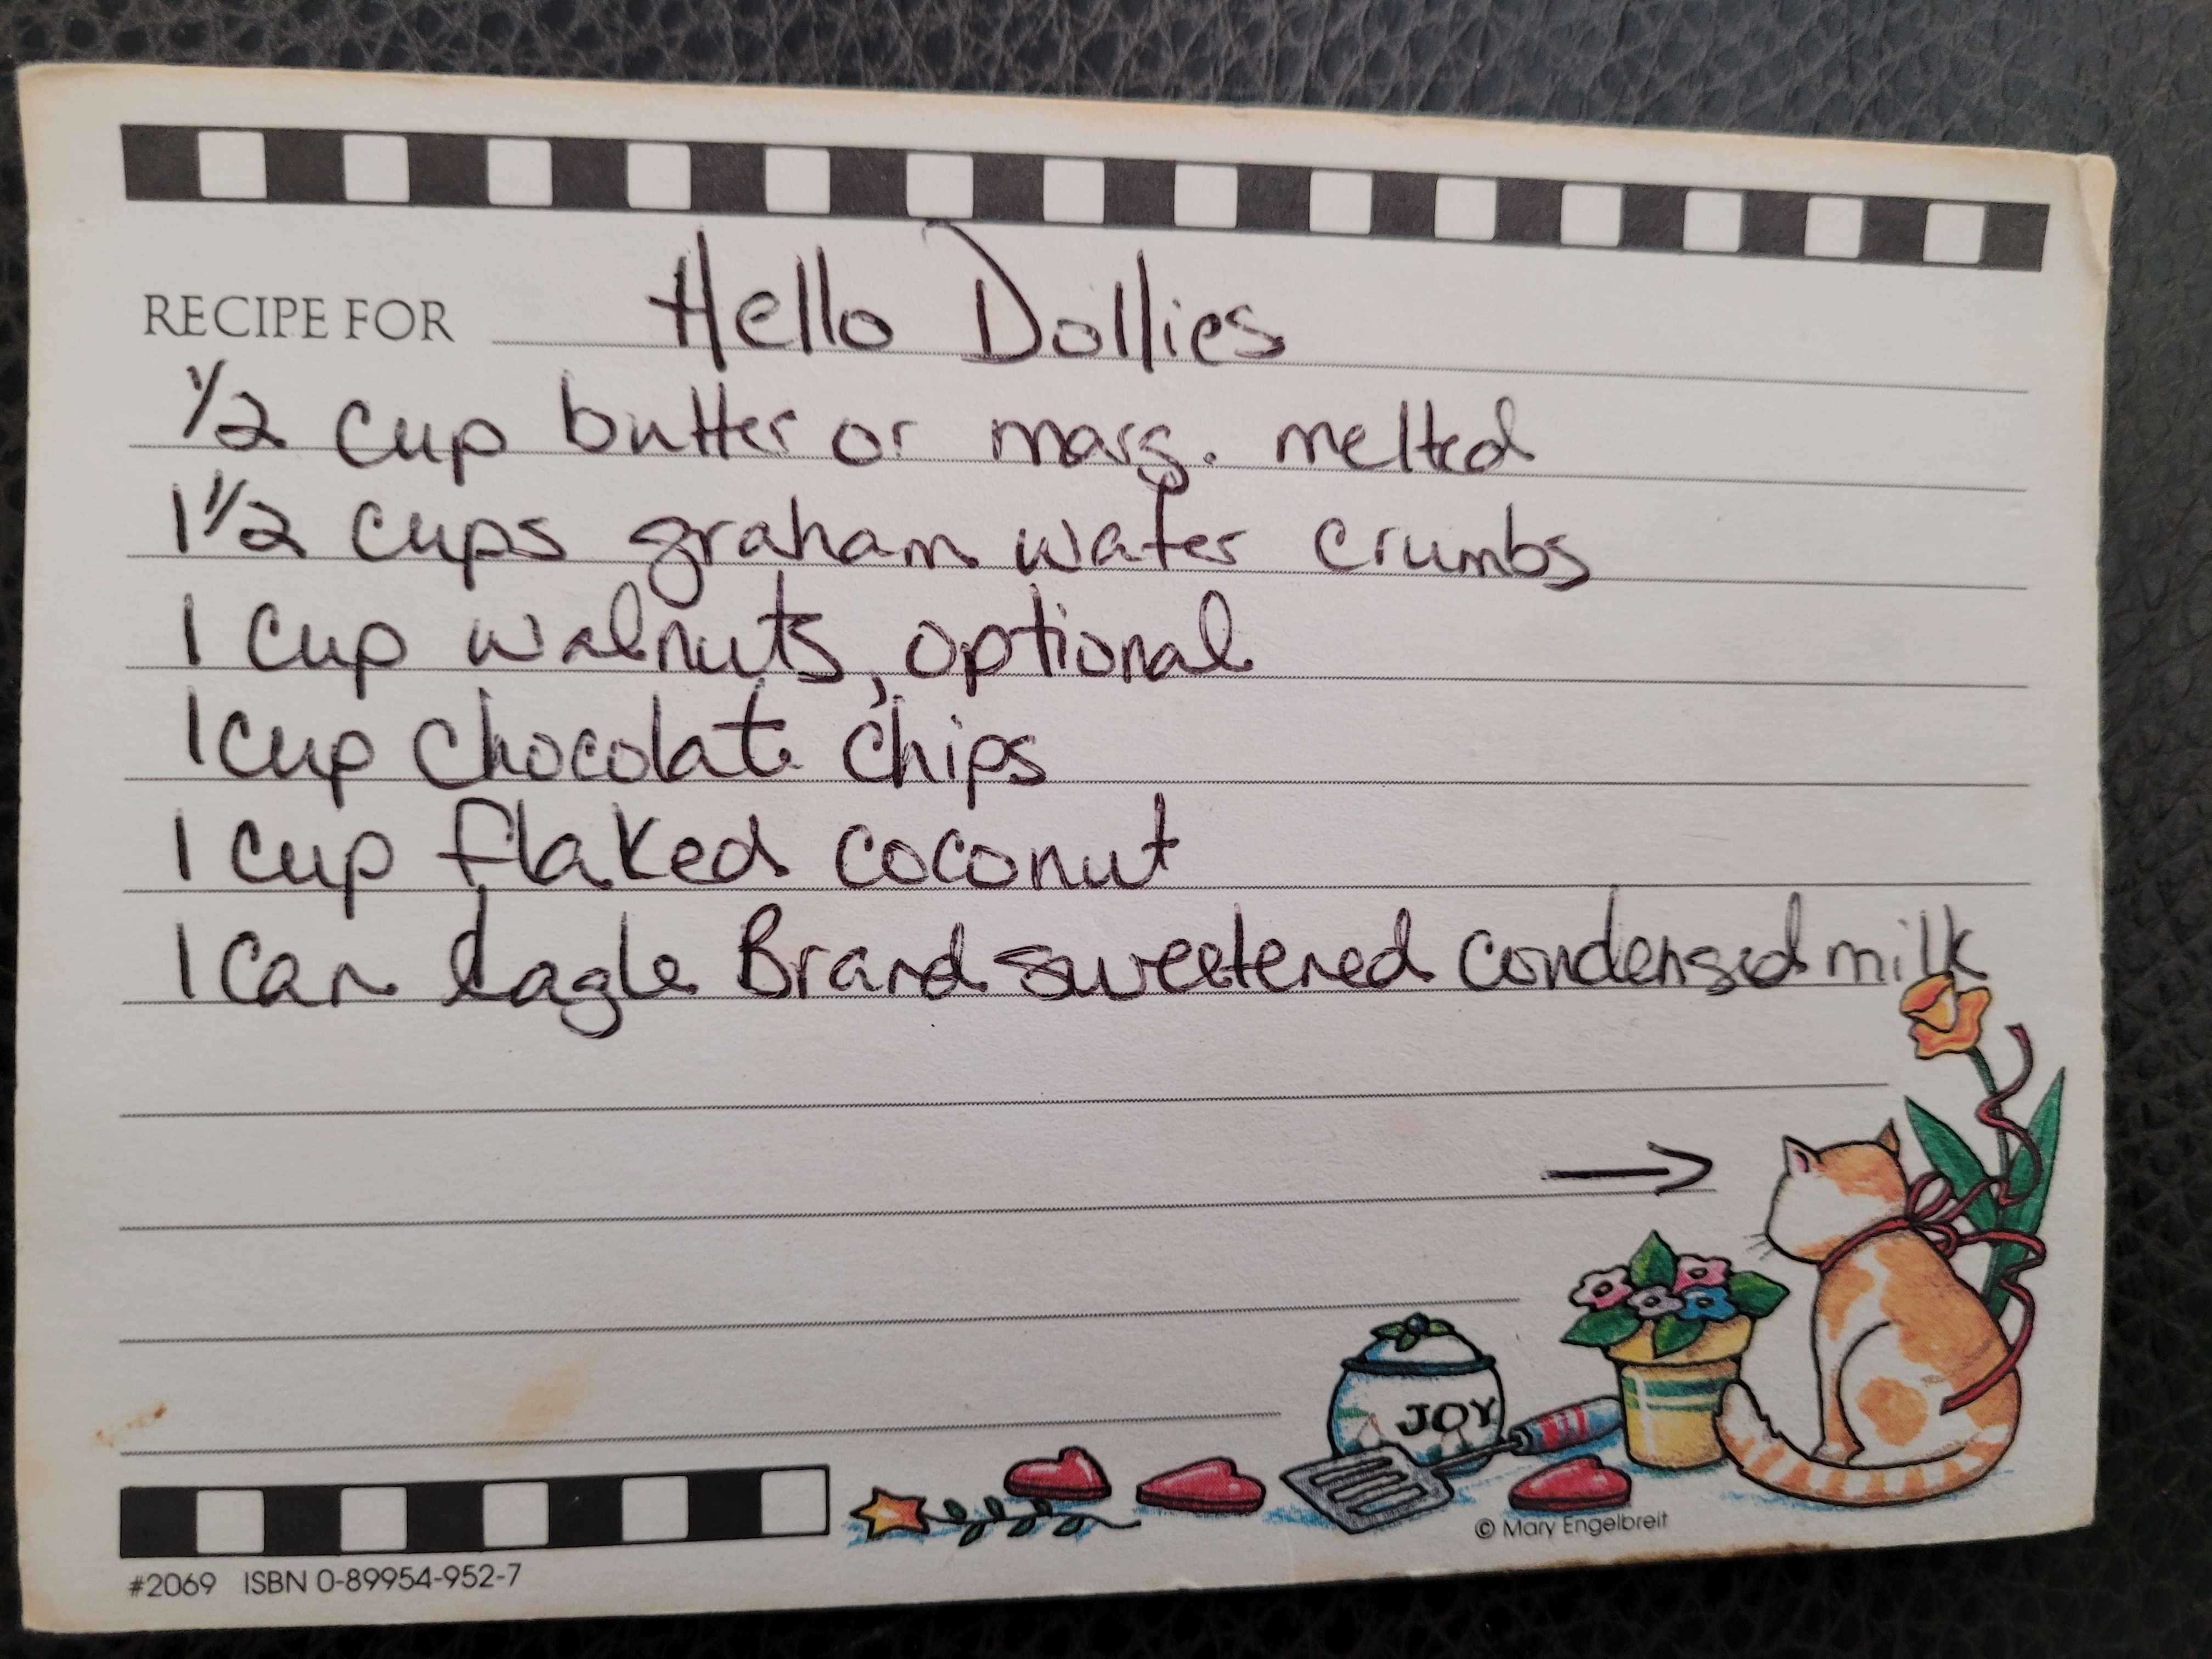 RECIPE FOR Hello Dollies
1/2 cup butter or marg. melted
1 1/2 cups graham wafer crumbs
1 cup walnuts, optional
1 cup chocolate chips
1 cup flaked coconut
1 can Eagle Brand sweetened condensed milk
→
JOY
© Mary Engelbreit
#2069 ISBN 0-89954-952-7